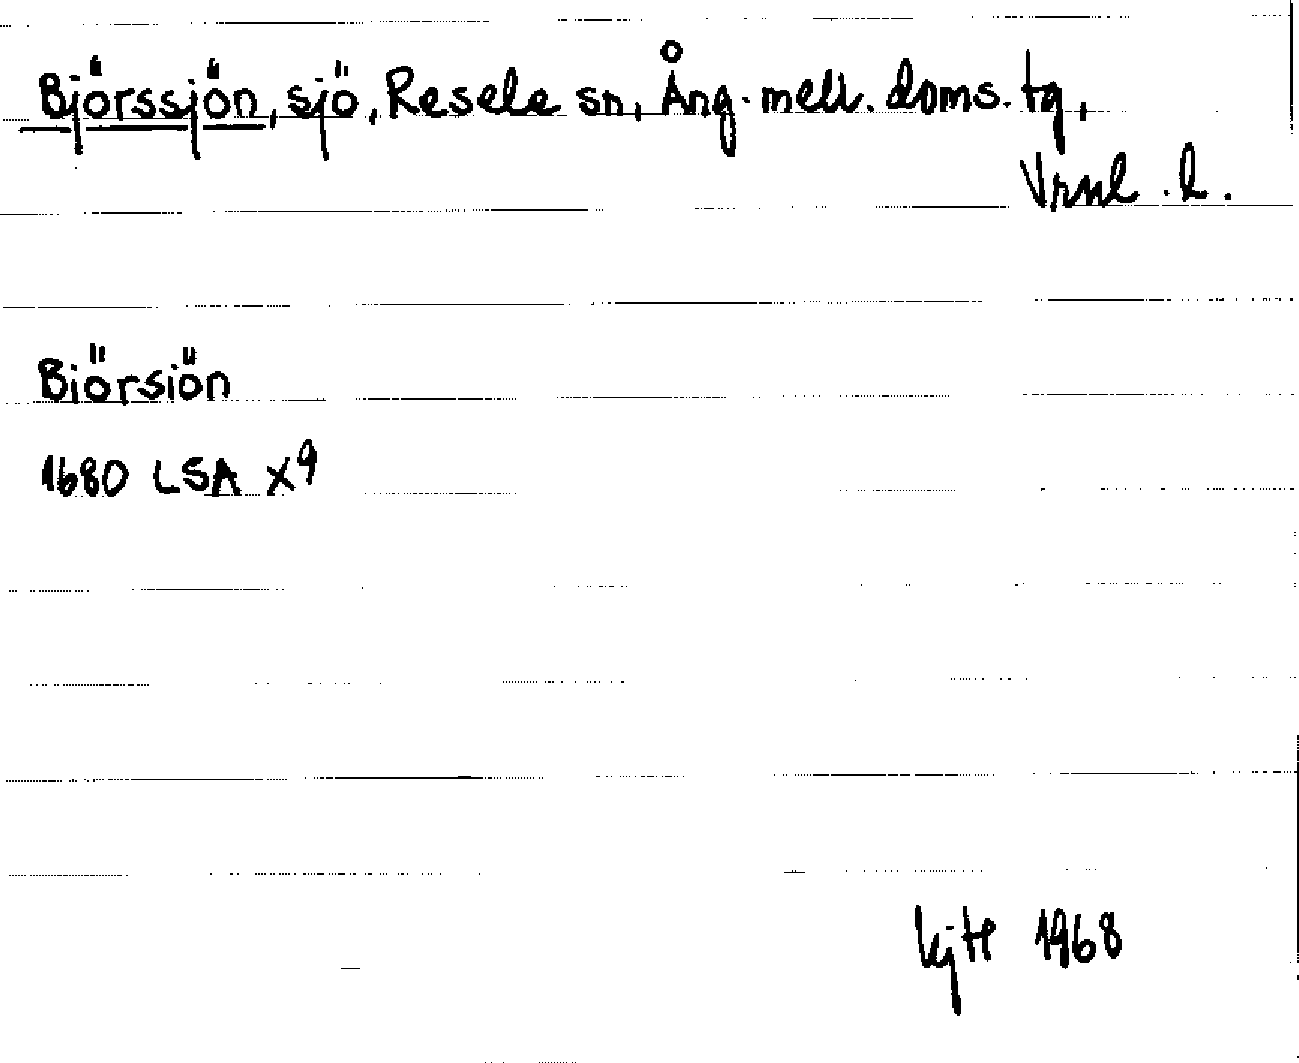 Björssjön, sjö, Resele sn, Ång. mell. doms. tg,
Vrnl. l.
Biörsiön
1680 LSA X9
1968